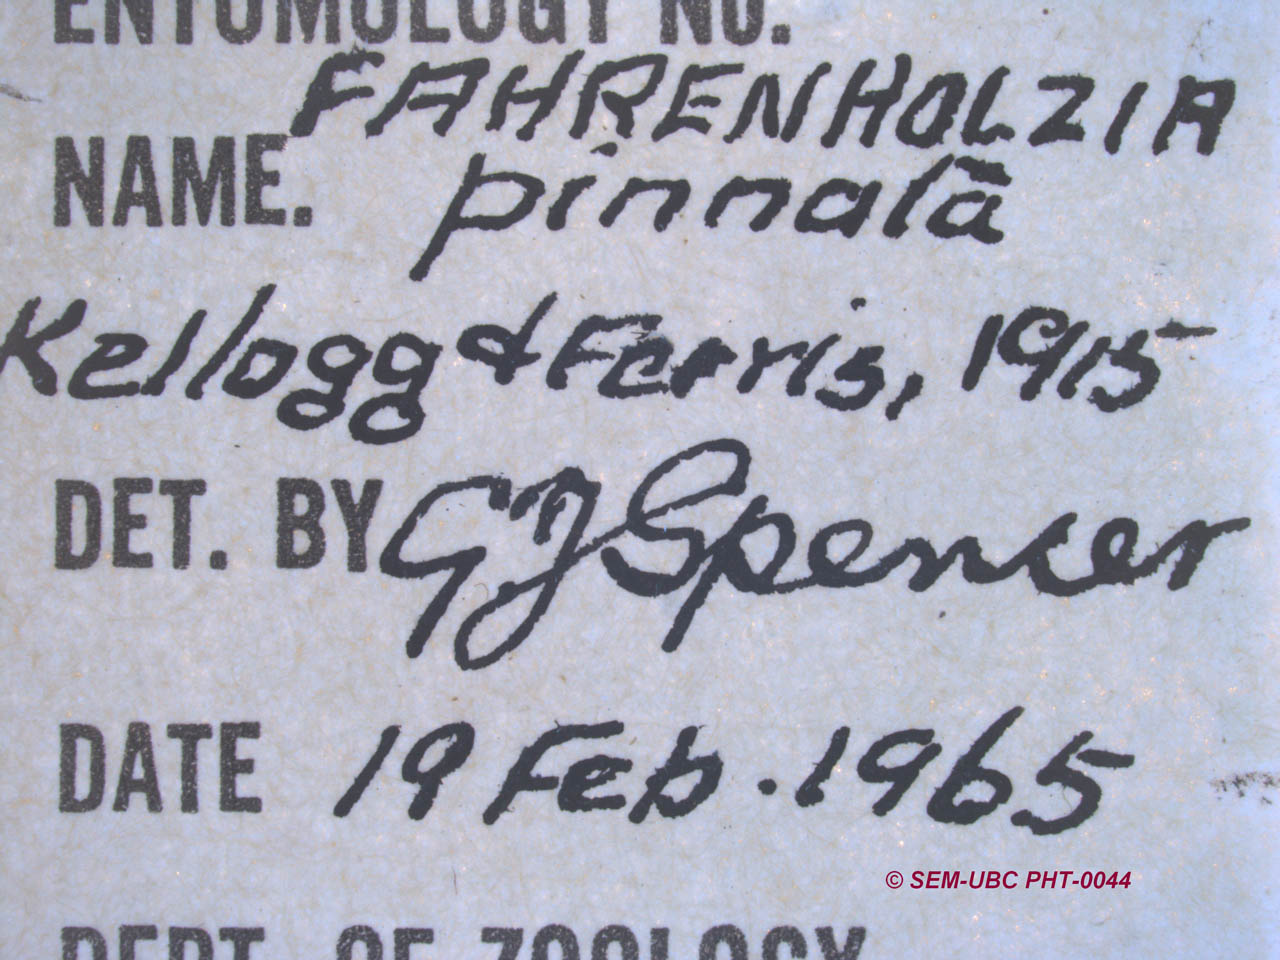 ENTOMOLOGY NO.
FAHRENHOLZIA
NAME. pinnata
Kellogg & Ferris, 1915
DET. BY G J Spencer
DATE 19 Feb. 1965
© SEM-UBC PHT-0044
DEPT. OF ZOOLOGY